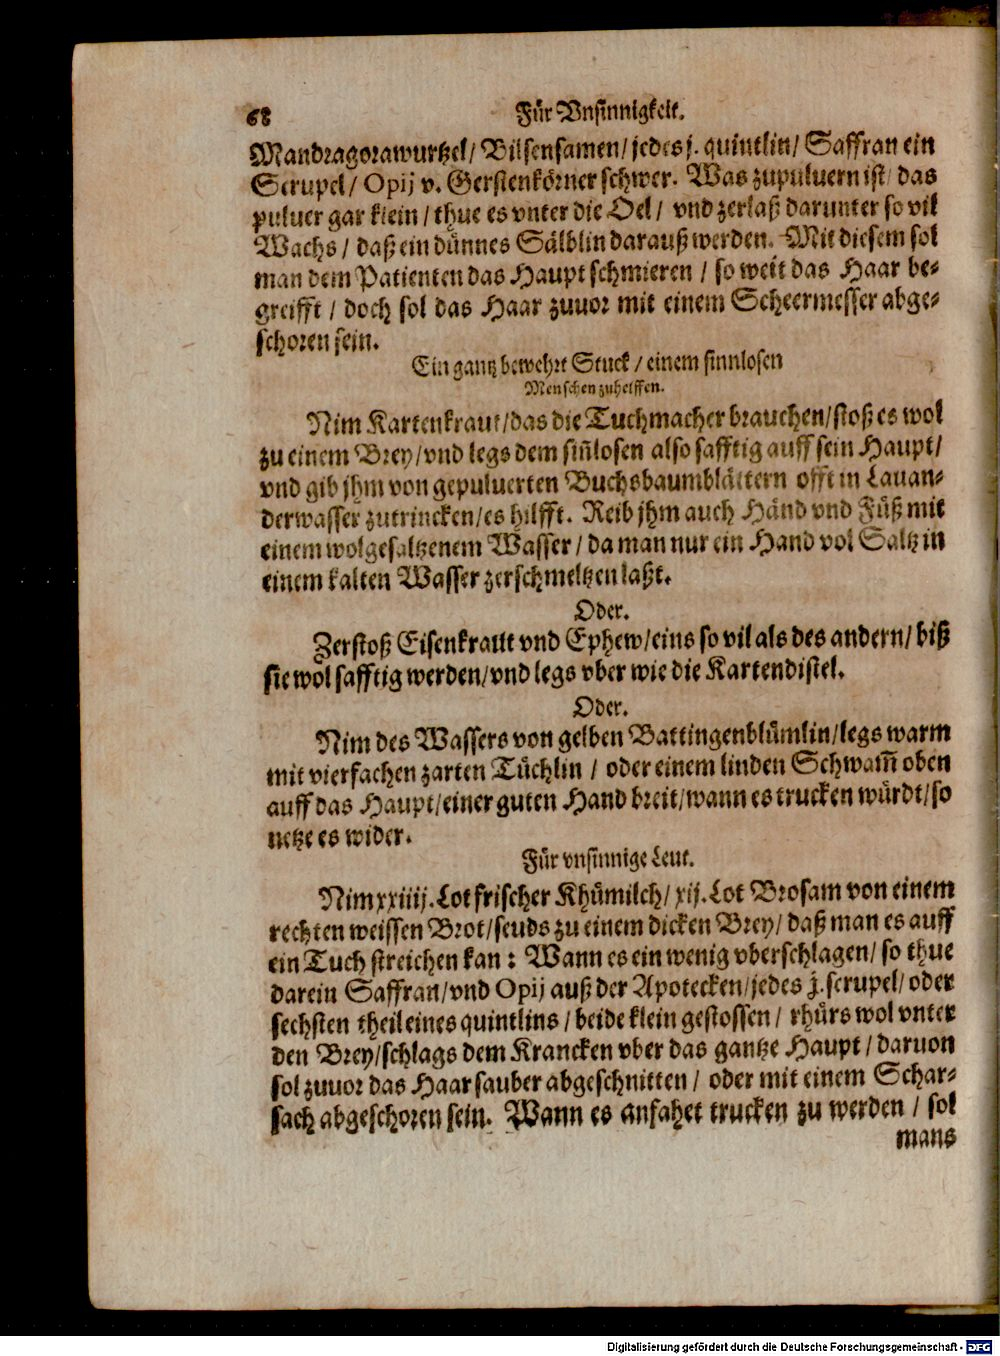 68 Für Vnsinnigkeit.
Mandragorawurtzel/ Bilsensamen/ jedes j. quintlin/ Saffran ein
Scrupel/ Opij v. Gerstenkörner schwer. Was zupuluern ist/ das
puluer gar klein/ thue es vnter die Oel/ vnd zerlaß darunter so vil
Wachs/ daß ein dünnes Sälblin darauß werden. Mit diesem sol
man dem Patienten das Haupt schmieren/ so weit das Haar be-
greifft/ doch sol das Haar zuuor mit einem Scheermesser abge-
schoren sein.
Ein gantz bewehrt Stuck/ einem sinnlosen
Menschen zuhelffen.
Nim Kartenkraut/ das die Tuchmacher brauchen/ stoß es wol
zu einem Brey/ vnd legs dem siñlosen also safftig auff sein Haupt/
vnd gib jhm von gepuluerten Buchsbaumblättern offt in Lauan-
derwasser zutrincken/ es hilfft. Reib jhm auch Händ vnd Füß mit
einem wolgesaltzenem Wasser/ da man nur ein Hand vol Saltz in
einem kalten Wasser zerschmeltzen laßt.
Oder.
Zerstoß Eisenkraut vnd Ephew/ eins so vil als des andern/ biß
sie wol safftig werden/ vnd legs vber wie die Kartendistel.
Oder.
Nim des Wassers von gelben Battingenblümlin/ legs warm
mit vierfachen zarten Tüchlin/ oder einem linden Schwam̃ oben
auff das Haupt/ einer guten Hand breit/ wann es trucken würdt/ so
netze es wider.
Für vnsinnige Leut.
Nim xxiiij. Lot frischer Khümilch/ xij. Lot Brosam von einem
rechten weissen Brot/ seuds zu einem dicken Brey/ daß man es auff
ein Tuch streichen kan: Wann es ein wenig vberschlagen/ so thue
darein Saffran/ vnd Opij auß der Apotecken/ jedes j. scrupel/ oder
sechsten theil eines quintlins/ beide klein gestossen/ rhürs wol vnter
den Brey/ schlags dem Krancken vber das gantze Haupt/ daruon
sol zuuor das Haar sauber abgeschnitten/ oder mit einem Schar-
sach abgeschoren sein. Wann es anfahet trucken zu werden/ sol
mans
Digitalisierung gefördert durch die Deutsche Forschungsgemeinschaft - DFG